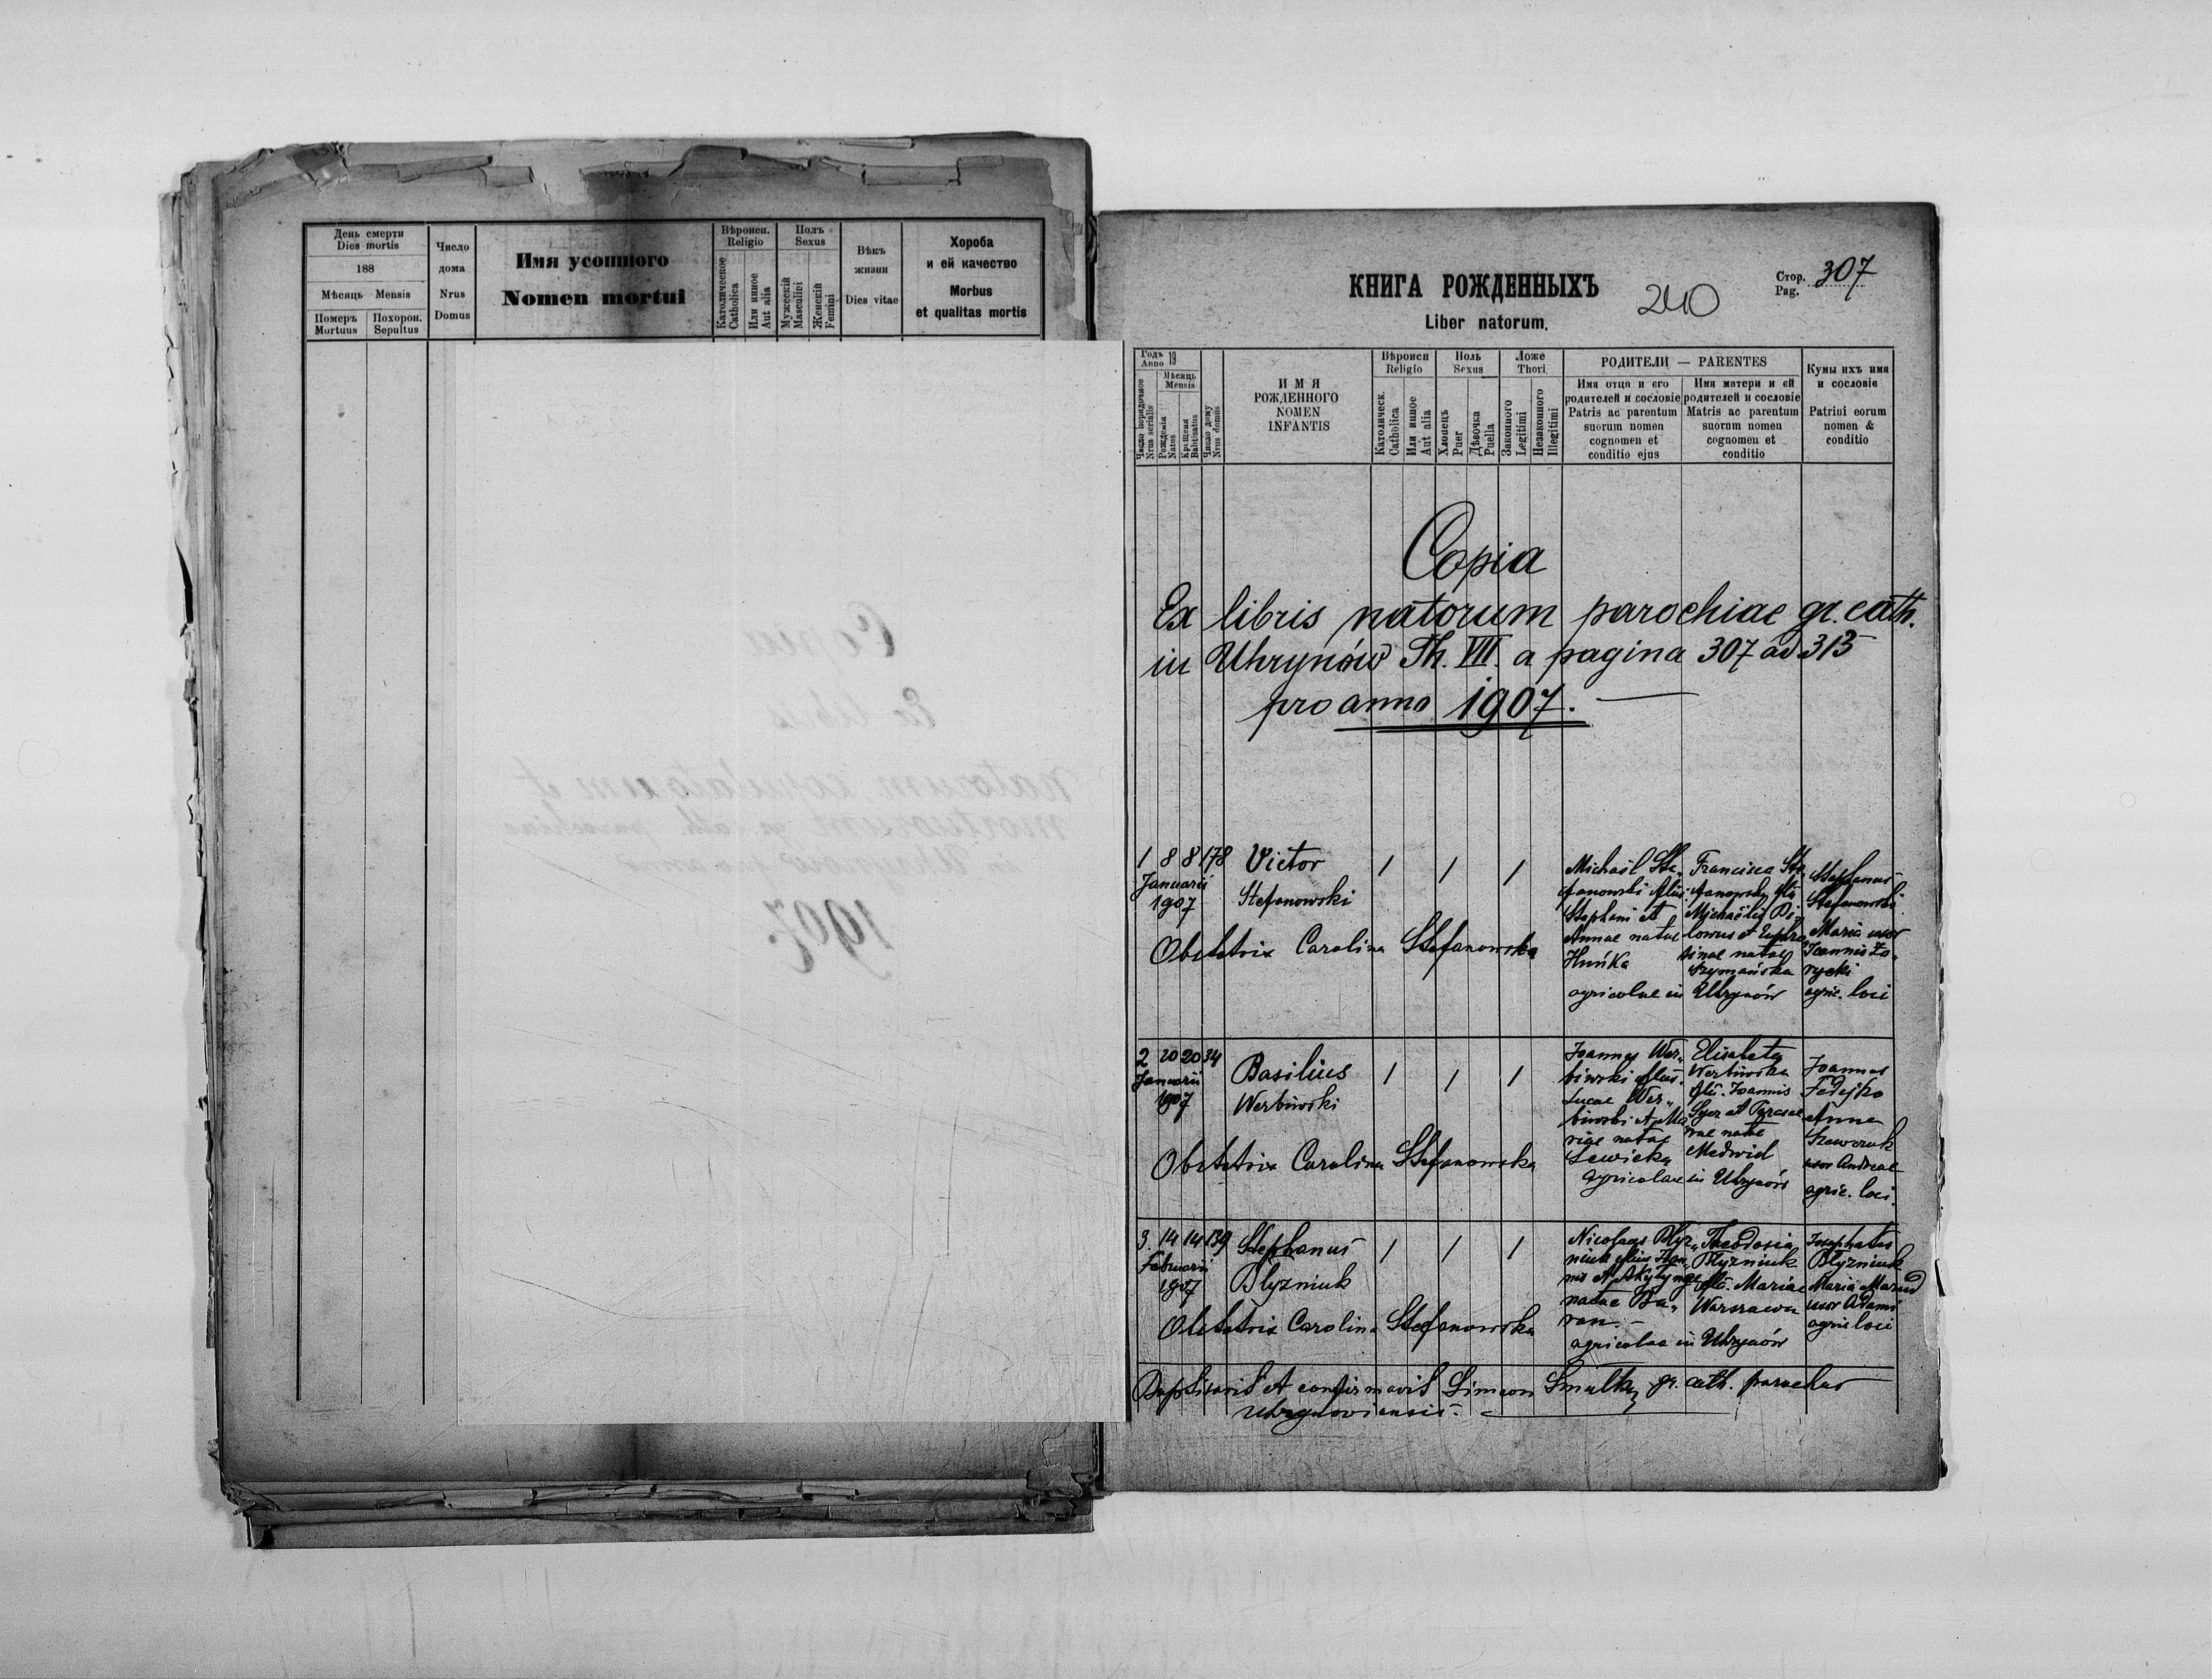 День смерти
Dies mortis
188
Мѣсяць Mensis
Померъ
Mortuus
Похорон.
Sepultus
Число
дома
Nrus
Domus
Имя усопшого
Nomen mortui
Вѣроисп.
Religio
Католическое
Catholica
Или инное
Aut alia
Полъ
Sexus
Мужескій
Masculini
Женскій
Femini
Вѣкъ
жизни
Dies vitae
Хороба
и ей качество
Morbus
et qualitas mortis
Copia
Ex libris
natorum copulatorum et
mortuorum gr. cath. parochiae
Uhrynów pro anno
1907.
КНИГА РОЖДЕННЫХЪ
Liber natorum.
240
Стор.
Pag. 307
Годъ
Anno 19
Мѣсяць
Mensis
Число порядочное
Nrus serialis
Рожденія
Natus
Крещенія
Batisatus
Число дому
Nrus domus
ИМЯ
РОЖДЕННОГО
NOMEN
INFANTIS
Вѣроисп
Religio
Католическ.
Catholica
Или инное
Aut alia
Поль
Sexus
Хлопець
Puer
Дѣвочка
Puella
Ложе
Thori
Законного
Legitimi
Незаконного
Illegitimi
РОДИТЕЛИ — PARENTES
Имя отца и его
родителей и сословіе
Patris ac parentum
suorum nomen
cognomen et
conditio ejus
Имя матери и ей
родителей и сословіе
Matris ac parentum
suorum nomen
cognomen et
conditio
Кумы ихъ имя
и сословіе
Patrini eorum
nomen &
conditio
Copia
Ex libris natorum parochiae gr. cath.
in Uhrynów Th. VII. a pagina 307 ad 313
pro anno 1907.
1 8 8 178
Januarii
1907
Victor
Stefanowski
/ / /
Michaël Ste„
fanowski filius
Stephani et
Annae natae
Huńka
agricolae in
Francisca Ste
fanowska filia
Michaëlis
et Euphro„
sinae natae
Szymańska
Uhrynów
Stephanus
Stefanowski
Maria uxor
Joannis Za„
rycki
agric. loci
Obstetrix Carolina Stefanowska
2 20 20 34
Januarii
1907
Basilius
Werbiwski
/ / /
Joannes Wer„
biwski filius
Lucae Wer„
biwski et Ma„
riae natae
Lewicka
agricolae in
Elisabeta
Werbiwska
filia Joannis
et Parasce
vae natae
Medwid
Uhrynów
Joannes
Fedejko
Anna
Szewczuk
uxor Andreae
agric. loci.
Obstetrix Carolina Stefanowska
3. 14 14 139
Februarii
1907
Stephanus
Blyzniuk
/ / /
Nicolaus Blyz„
niuk filius Joan„
nis et
natae Ba„
ran.
agricolae in
Theodosia
Blyzniuk
filia Mariae
Warszawa
Uhrynów
Josaphatus
Blyzniuk
Maria
uxor Adami
agric loci
Obstetrix Carolina Stefanowska
Baptisavit et confirmavit Simeon Smulka gr. cath. parochus
Uhrynoviensis.